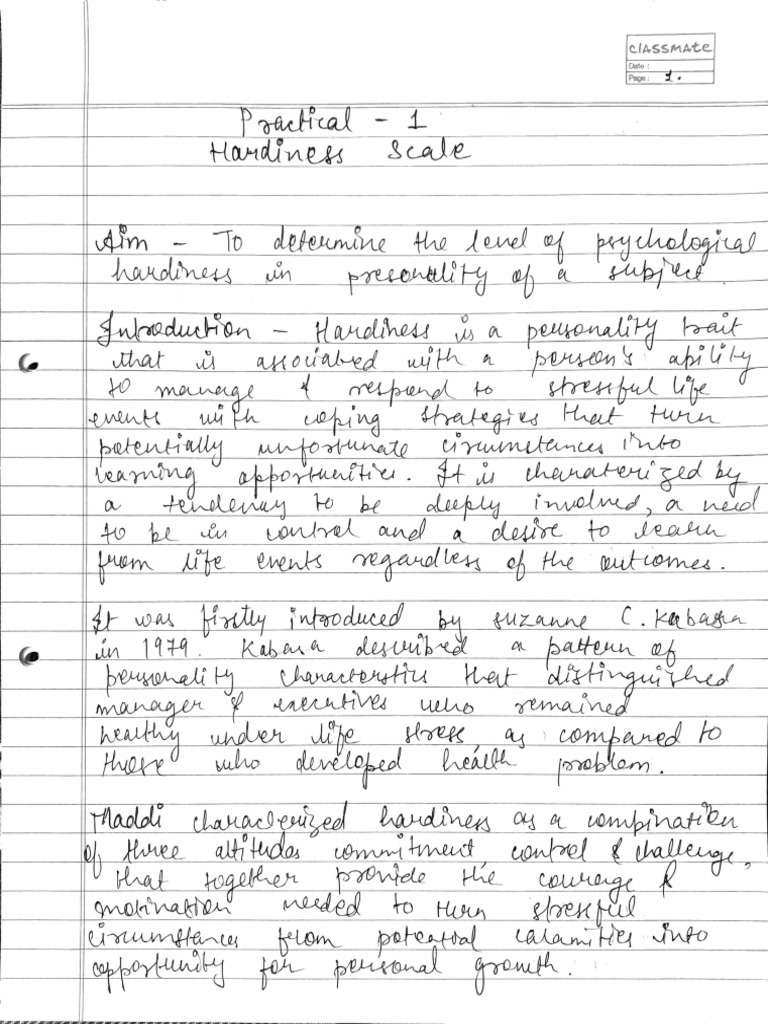 classmate
Date :
Page : 1.
Practical - 1
Hardiness Scale
Aim - To determine the level of psychological
hardiness in presonality of a subject.
Introduction - Hardiness is a personality trait
that is associated with a person's ability
to manage & respond to stressful life
events with coping strategies that turn
potentially unfortunate circumstances into
learning opportunities. It is charaterized by
a tendency to be deeply involved, a need
to be in control and a desire to learn
from life events regardless of the outcomes.
It was firstly introduced by suzanne C. Kabasa
in 1979. Kabasa described a pattern of
personality characterstics that distinguished
manager & executives who remained
healthy under life stress, as compared to
those who developed health problem.
Maddi characterized hardiness as a combination
of three attitudes commitment, control & challenge,
that together provide the courage &
motivation needed to turn stressful
circumstances from potential calamities into
opportunity for personal growth.